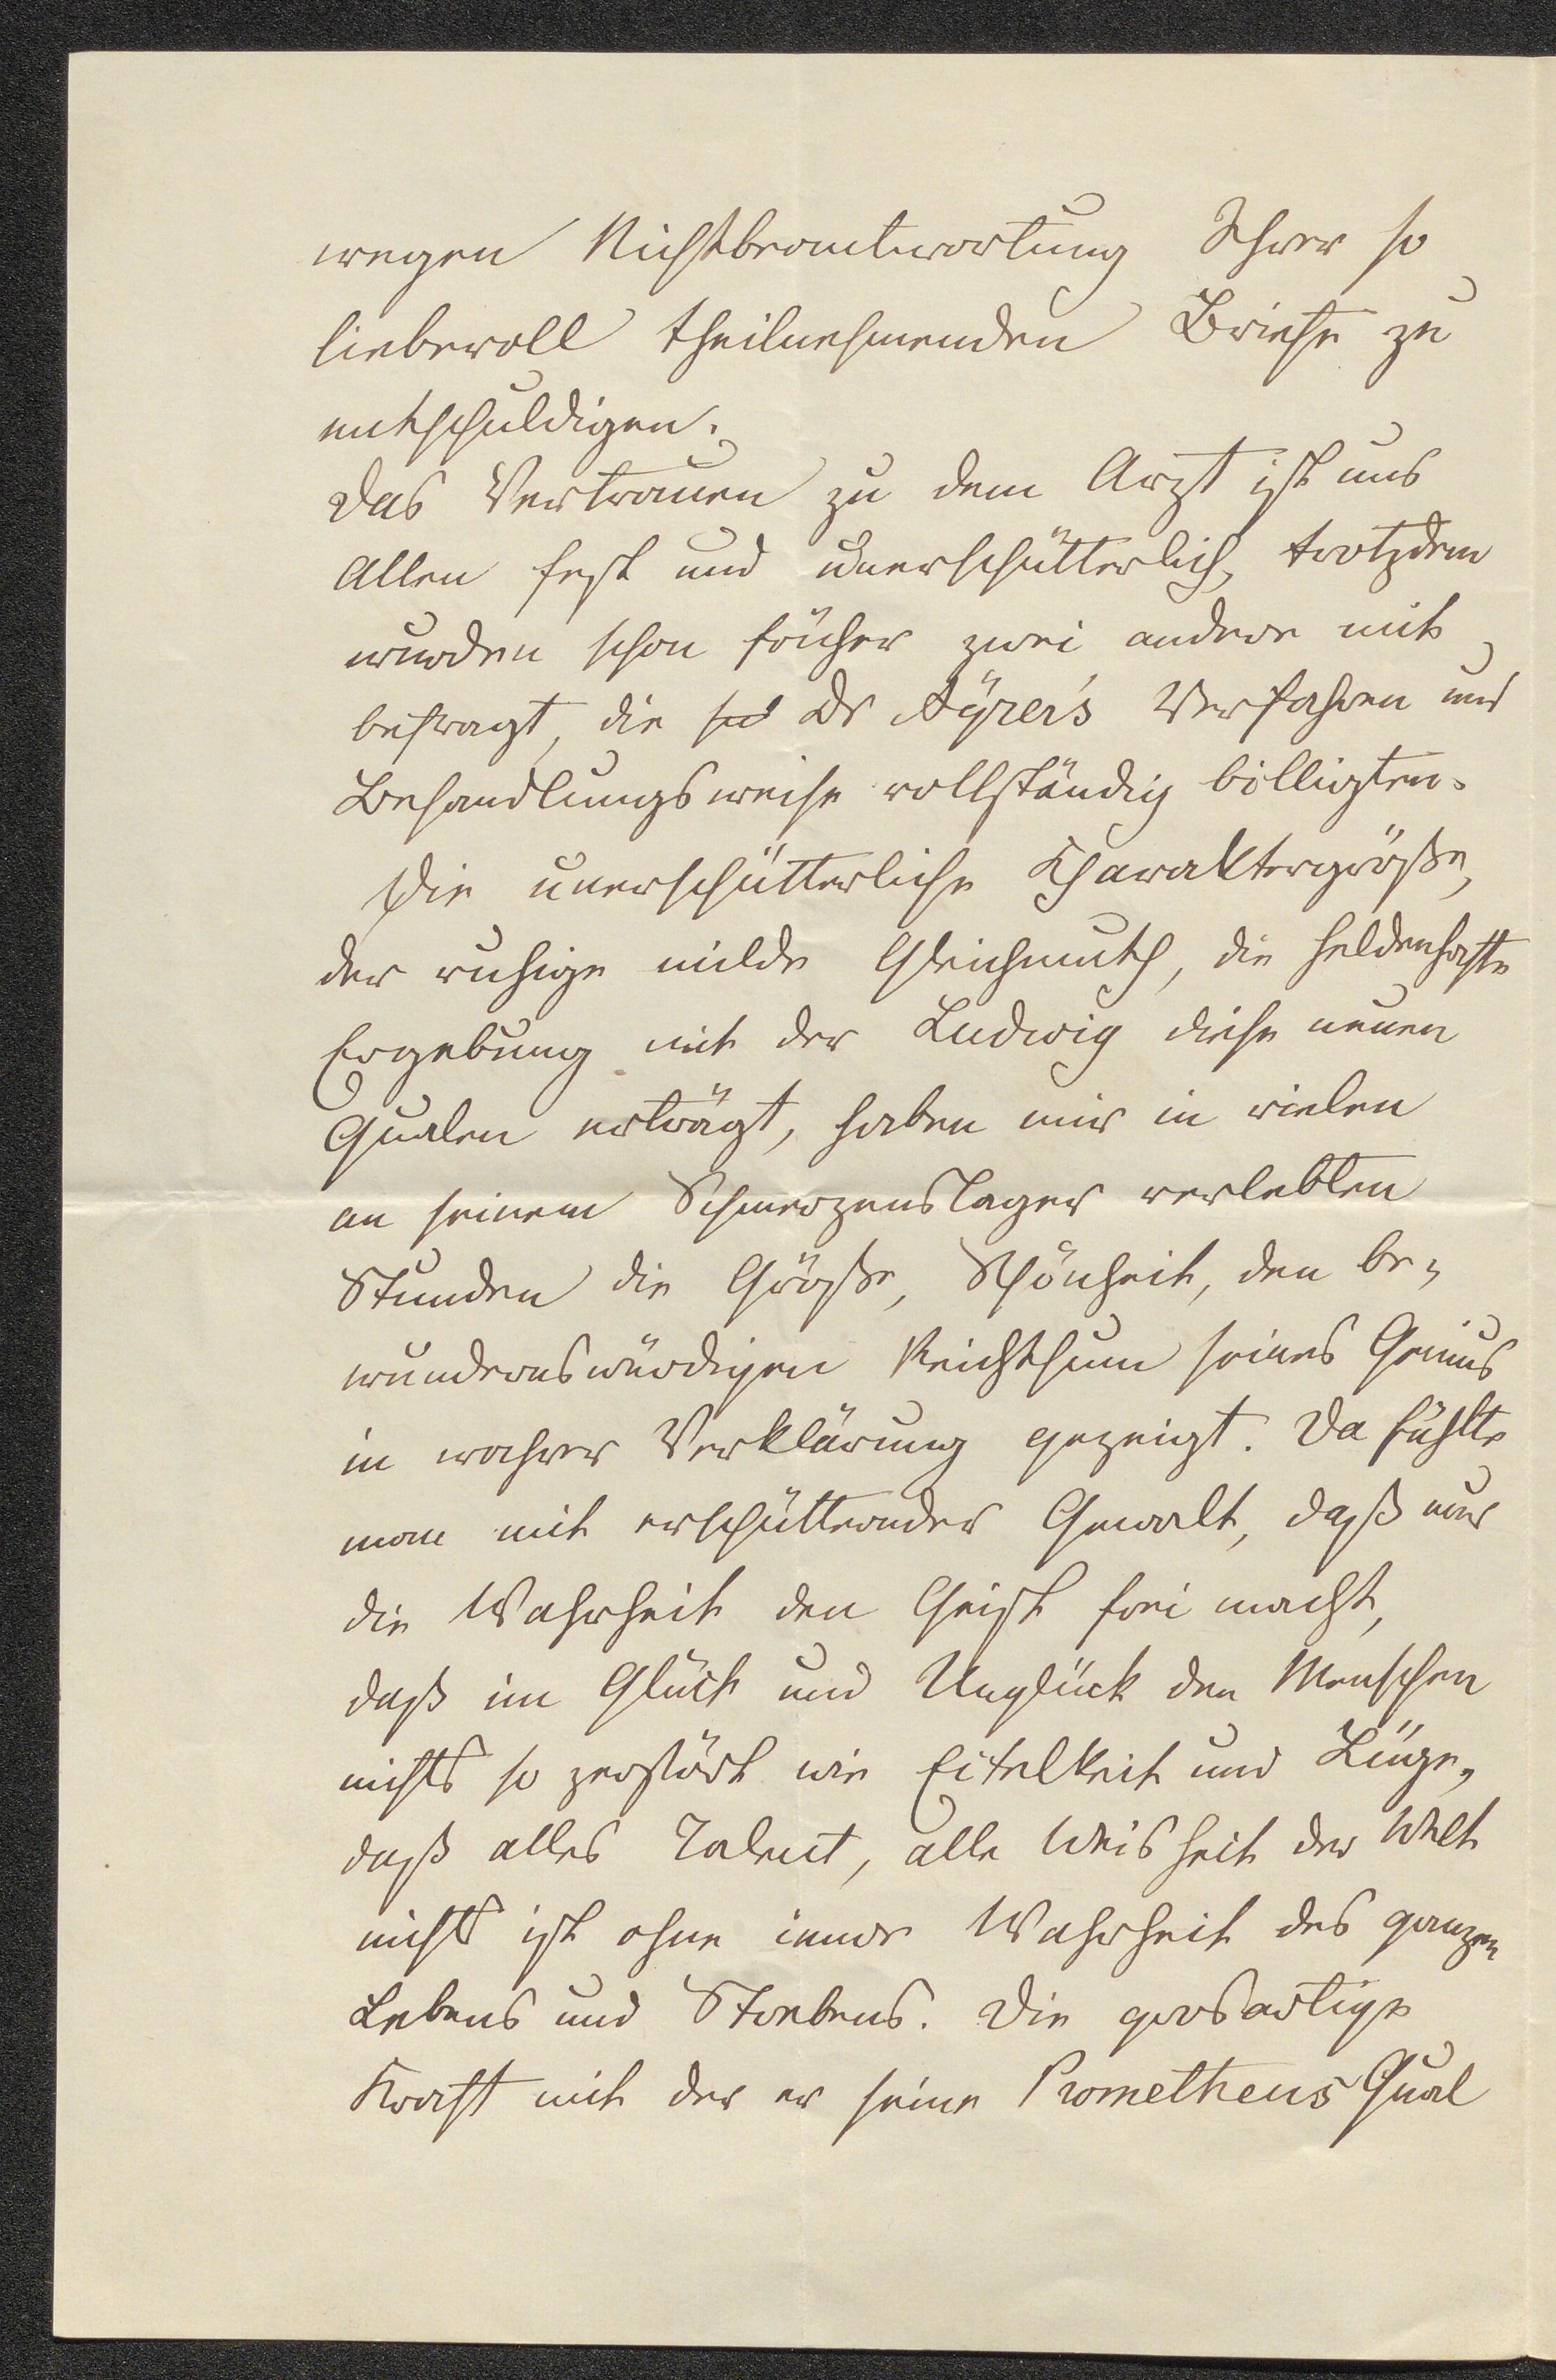 wegen Nichtbeantwortung Ihrer so
liebevoll theilnehmenden Briefe zu
entschuldigen.
Das Vertrauen zu dem Arzt ist uns
Allen fest und unerschütterlich, trotzdem
wurden schon früher zwei andere mit
befragt, die Dr Ayrer's Verfahren und
Behandlungsweise vollständig billigten.
Die unerschütterliche Charaktergröße,
der ruhige milde Gleichmuth, die heldenhafte
Ergebung mit der Ludwig diese neuen
Qualen erträgt, haben mir in vielen
an seinem Schmerzenslager verlebten
Stunden die Größe, Schönheit, den be-
wundernswürdigen Reichthum seines Genius
in wahrer Verklärung gezeigt. Da fühlte
man mit erschütternder Gewalt, daß nur
die Wahrheit den Geist frei macht,
daß im Glück und Unglück den Menschen
nichts so zerstört wie Eitelkeit und Lüge,
daß alles Talent, alle Weisheit der Welt
nichts ist ohne innere Wahrheit des ganzen
Lebens und Strebens. Die grosartige
Kraft mit der er seine Prometheus Qual